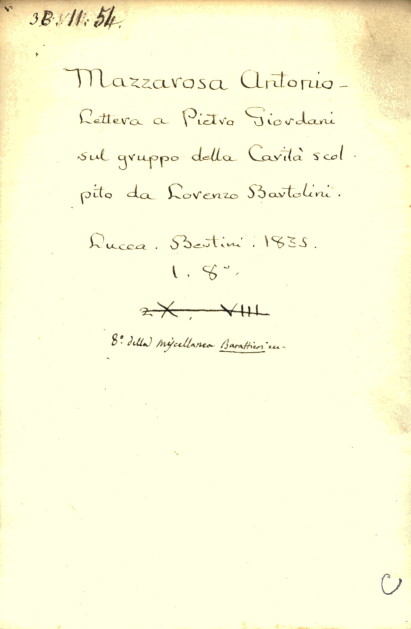 3B.VII.54.
Mazzarosa Antonio -
Lettera a Pietro Giordani
sul gruppo della Carità scol-
pito da Lorenzo Bartolini.
Lucca. Bertini. 1835.
1. 8°.
2 X. VIII
8° della miscellanea Barattieri
C